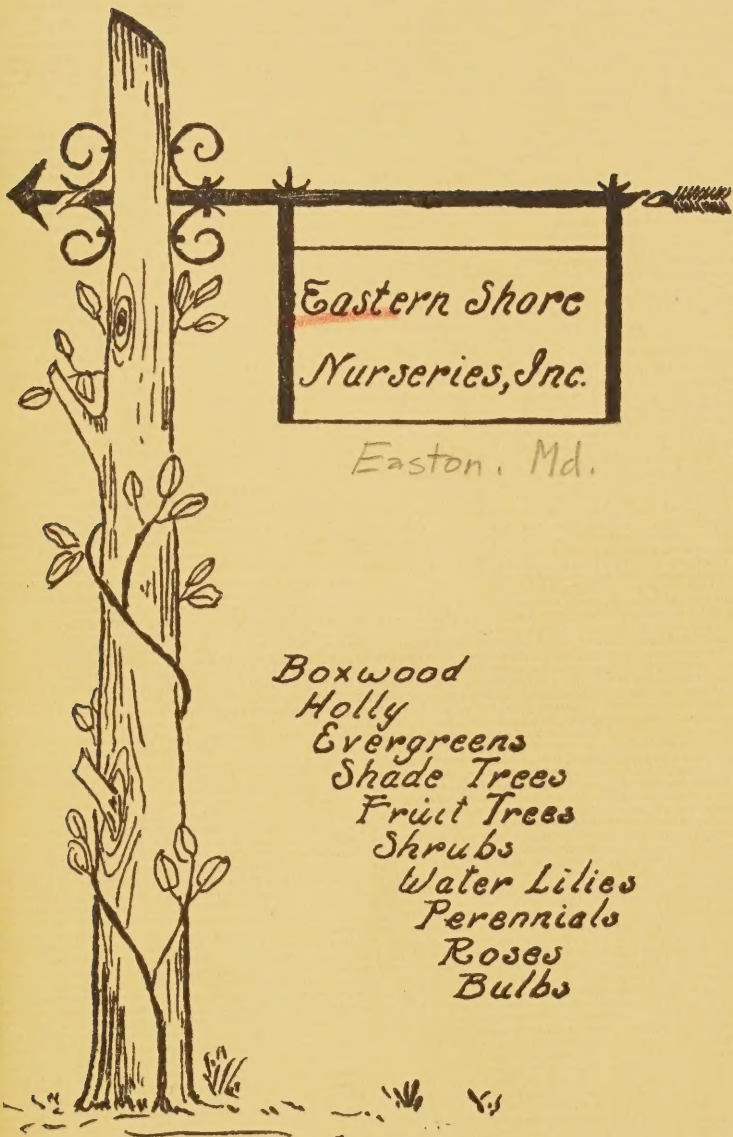 Eastern Shore
Nurseries, Inc.
Easton. Md.
Boxwood
Holly
Evergreens
Shade Trees
Fruit Trees
Shrubs
Water Lilies
Perennials
Roses
Bulbs